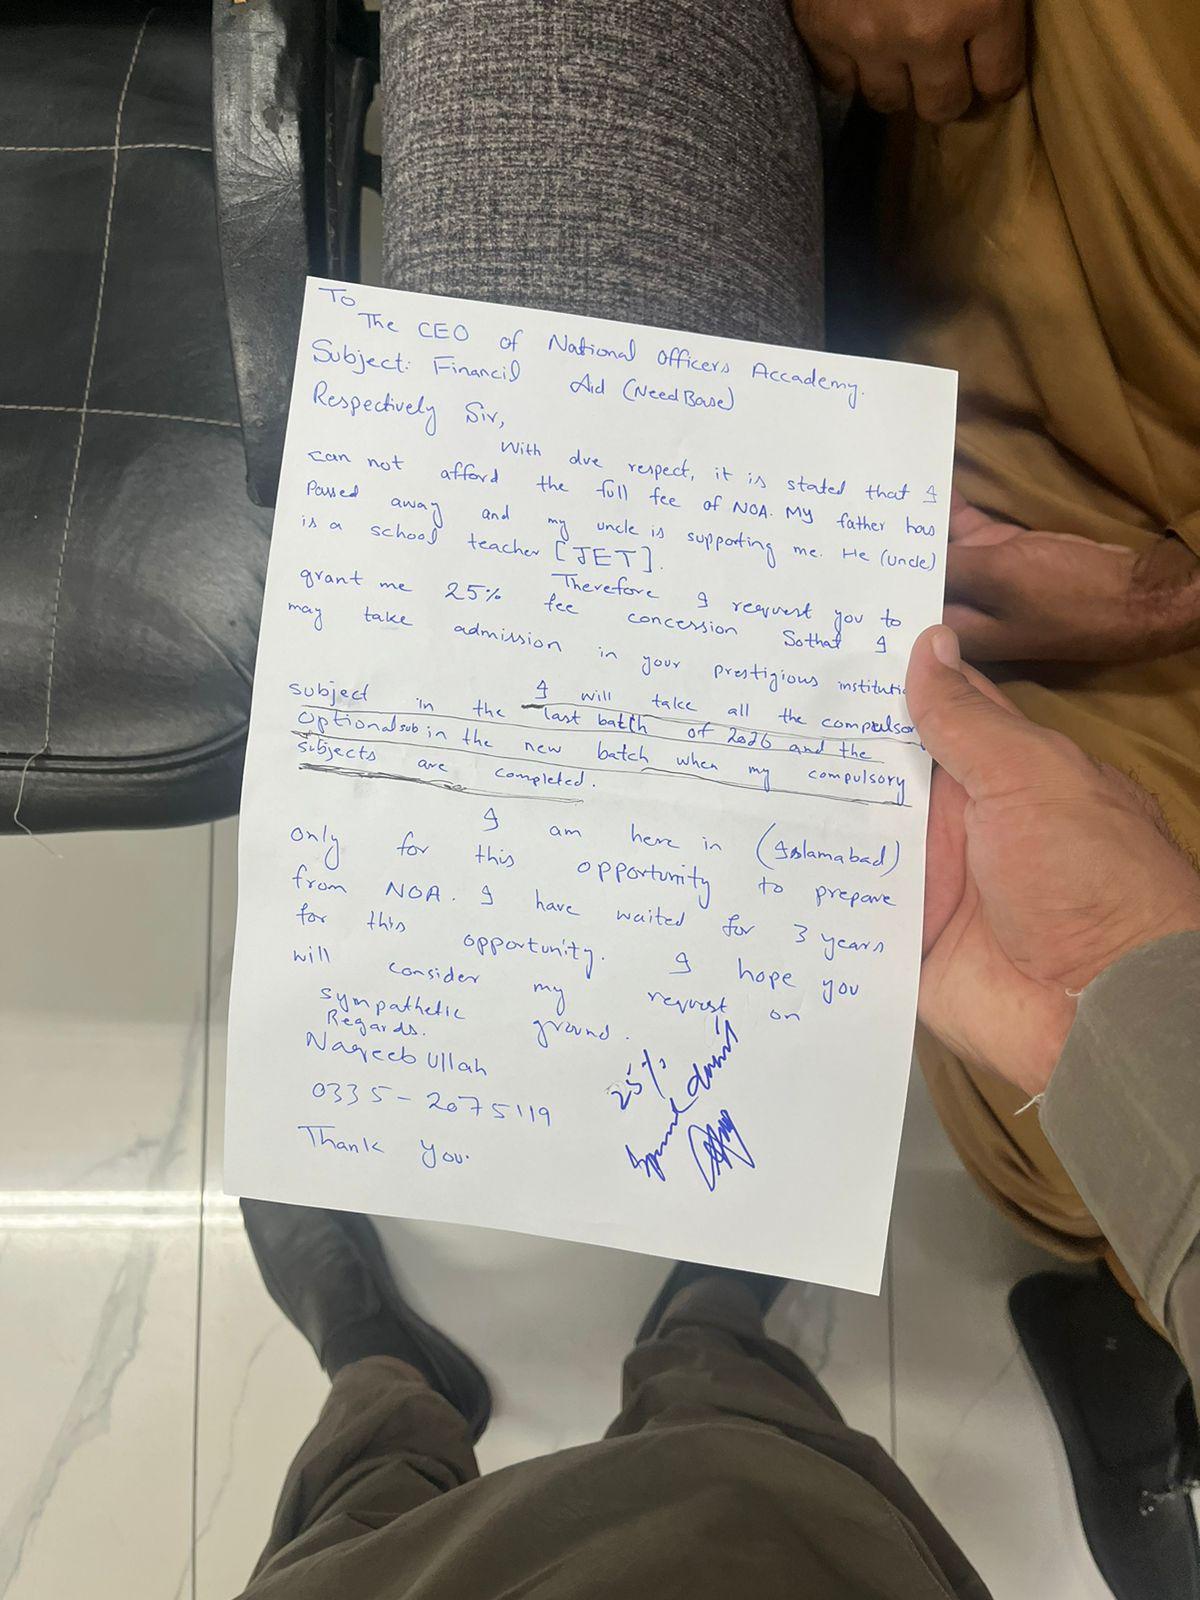 To
The CEO of National Officers Accademy.
Subject: Financil Aid (Need Base)
Respectively Sir,
With due respect, it is stated that I
can not afford the full fee of NOA. My father has
Passed away and my uncle is supporting me. He (uncle)
is a school teacher [JET].
Therefore I request you to
grant me 25% fee concession Sothat I
may take admission in your prestigious instituti
I will take all the compulsor
subject in the last batch of 2026 and the
Optional sub in the new batch when my compulsory
subjects are completed.
I am here in (Islamabad)
only for this opportunity to prepare
from NOA. I have waited for 3 years
for this opportunity. I hope you
will consider my request on
sympathetic ground.
Regards.
Naqeeb Ullah
0335-2075119
Thank you.
25%